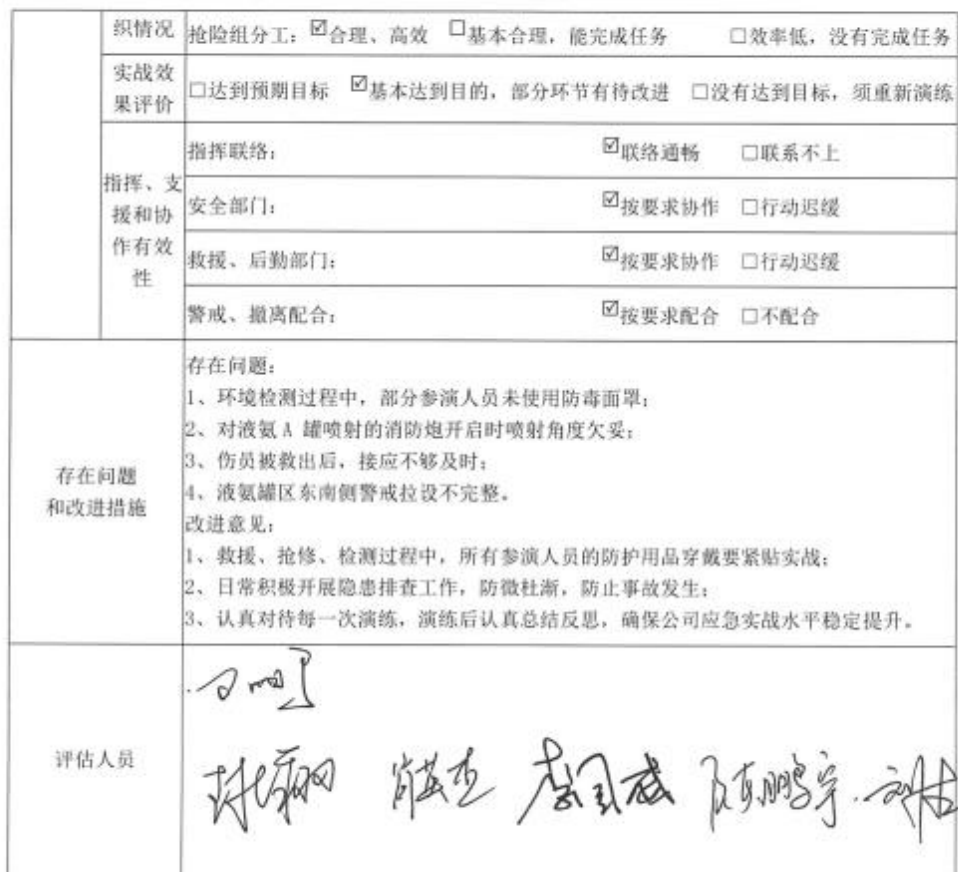 织情况
抢险组分工：☑合理、高效 □基本合理，能完成任务 □效率低，没有完成任务
实战效
果评价
□达到预期目标 ☑基本达到目的，部分环节有待改进 □没有达到目标，须重新演练
指挥、支
援和协
作有效
性
指挥联络： ☑联络通畅 □联系不上
安全部门： ☑按要求协作 □行动迟缓
救援、后勤部门： ☑按要求协作 □行动迟缓
警戒、撤离配合： ☑按要求配合 □不配合
存在问题
和改进措施
存在问题：
1、环境检测过程中，部分参演人员未使用防毒面罩；
2、对液氨 A 罐喷射的消防炮开启时喷射角度欠妥；
3、伤员被救出后，接应不够及时；
4、液氨罐区东南侧警戒拉设不完整。
改进意见：
1、救援、抢修、检测过程中，所有参演人员的防护用品穿戴要紧贴实战；
2、日常积极开展隐患排查工作，防微杜渐，防止事故发生；
3、认真对待每一次演练，演练后认真总结反思，确保公司应急实战水平稳定提升。
评估人员